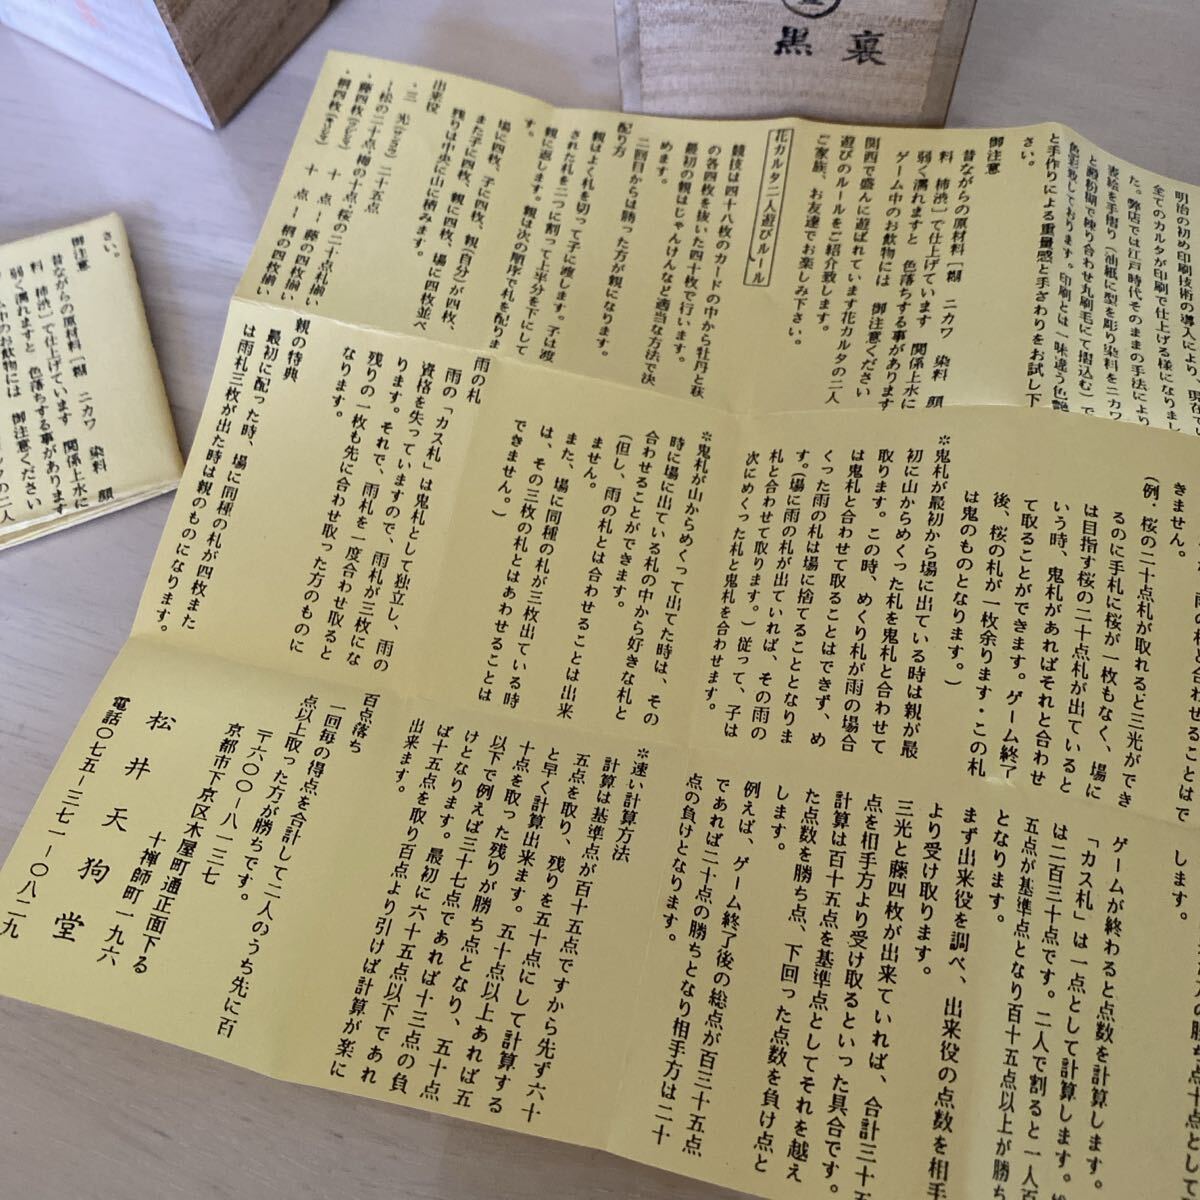 黒裏
明治の初め印刷技術の導入により、現在で
全てのカルタが印刷で仕上げる様になりまし
た。弊店では江戸時代そのままの手法により
表絵を手摺り(油紙に型を彫り染料をニカワ
と澱粉糊で練り合わせ丸刷毛にて摺込む)で
色彩致しております。印刷とは一味違う色艶
と手作りによる重量感と手ざわりをお試し下
さい。
御注意
昔ながらの原材料「糊 ニカワ 染料 顔
料 柿渋」で仕上げています 関係上水に
弱く濡れますと 色落ちする事があります
ゲーム中のお飲物には 御注意ください
関西で盛んに遊ばれています花カルタの二人
遊びのルールをご紹介致します。
ご家族、お友達でお楽しみ下さい。
花カルタ二人遊びルール
競技は四十八枚のカードの中から牡丹と萩
の各四枚を抜いた四十枚で行います。
最初の親はじゃんけんなど適当な方法で決
めます。
二回目からは勝った方が親になります。
配り方
親はよく札を切って子に渡します。子は渡
された札を二つに割って上半分を下にして
親に返します。親は次の順序で札を配りま
す。
場に四枚、子に四枚、親(自分)が四枚、
また子に四枚、親に四枚、場に四枚並べ
残りは中央に山に積みます。
出来役
、三光(サンコウ)二十五点
―松の二十点、梅の十点、桜の二十点札揃い
、藤四枚 十点―藤の四枚揃い
、桐四枚 十点―桐の四枚揃い
きません。
(例・桜の二十点札が取れると三光ができ
るのに手札に桜が一枚もなく、場に
は目指す桜の二十点札が出ていると
いう時、鬼札があればそれと合わせ
て取ることができます。ゲーム終了
後、桜の札が一枚余ります・この札
は鬼のものとなります。)
※鬼札が最初から場に出ている時は親が最
初に山からめくった札を鬼札と合わせて
取ります。この時、めくり札が雨の場合
は鬼札と合わせて取ることはできず、め
くった雨の札は場に捨てることとなりま
す。(場に雨の札が出ていれば、その雨の
札と合わせて取ります。)従って、子は
次にめくった札と鬼札を合わせます。
※鬼札が山からめくって出てた時は、その
時に場に出ている札の中から好きな札と
合わせることができます。
(但し、雨の札とは合わせることは出来
ません。
また、場に同種の札が三枚出ている時
は、その三枚の札とはあわせることは
できません。)
雨の札
雨の「カス札」は鬼札として独立し、雨の
資格を失っていますので、雨札が三枚にな
ります。それで、雨札を一度合わせ取ると
残りの一枚も先に合わせ取った方のものに
なります。
親の特典
最初に配った時、場に同種の札が四枚また
は雨札三枚が出た時は親のものになります。
します。
ゲームが終わると点数を計算します。
「カス札」は一点として計算します。
は二百三十点です。二人で割ると一人百
五点が基準点となり百十五点以上が勝ち
となります。
まず出来役を調べ、出来役の点数を相手
より受け取ります。
三光と藤四枚が出来ていれば、合計三十五
点を相手方より受け取るといった具合です。
計算は百十五点を基準点としてそれを越え
た点数を勝ち点、下回った点数を負け点と
します。
例えば、ゲーム終了後の総点が百三十五点
であれば二十点の勝ちとなり相手方は二十
点の負けとなります。
※速い計算方法
計算は基準点が百十五点ですから先ず六十
五点を取り、残りを五十点にして計算する
と早く計算出来ます。五十点以上あれば五
十点を取った残りが勝ち点となり、五十点
以下で例えば三十七点であれば十三点の負
けとなります。最初に六十五点以下であれ
ば十五点を取り百点より引けば計算が楽に
出来ます。
百点落ち
一回毎の得点を合計して二人のうち先に百
点以上取った方が勝ちです。
〒六〇〇-八一三七
京都市下京区木屋町通正面下る
十禅師町一九六
松井天狗堂
電話〇七五-三七一-〇八二九
さい。
御注意
昔ながらの原材料「糊 ニカワ 染料 顔
料 柿渋」で仕上げています 関係上水に
弱く濡れますと 色落ちする事があります
中のお飲物には 御注意ください